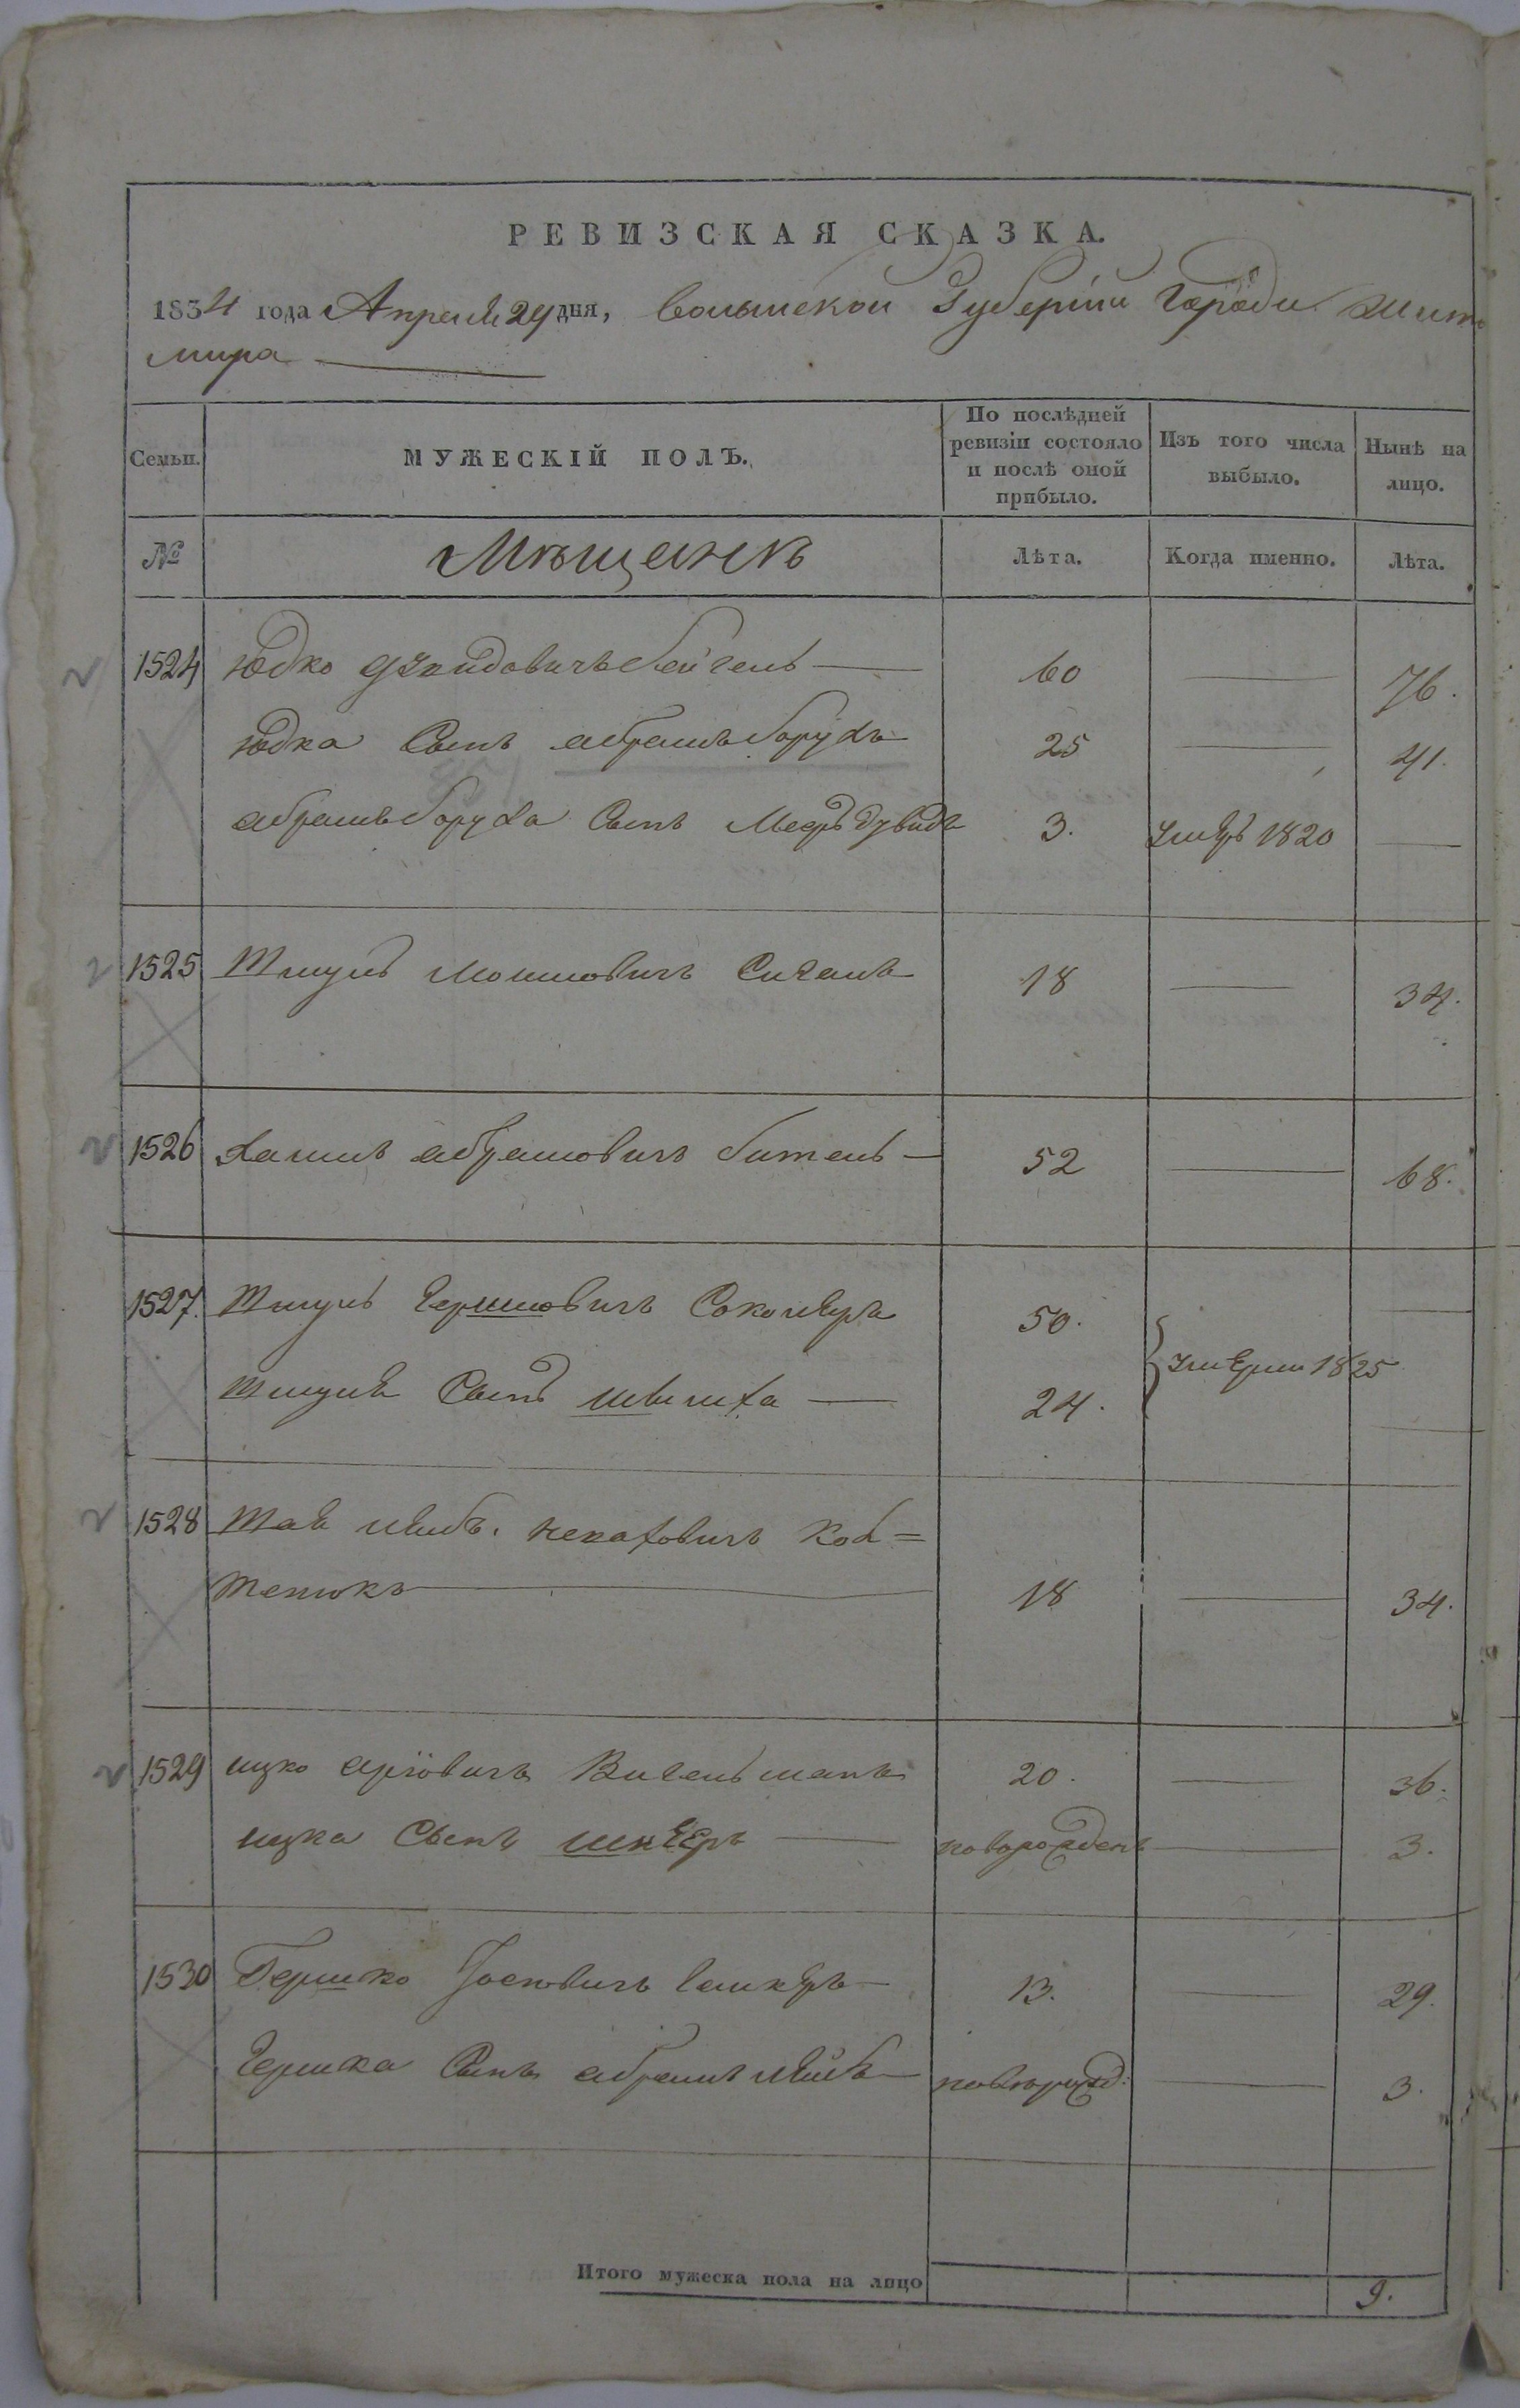 РЕВИЗСКАЯ СКАЗКА.
1834 года Апреля 29 дня, волынской Губерніи Города Жито
мира
Семьи.
МУЖЕСКІЙ ПОЛЪ.
По послѣдней ревизіи состояло и послѣ оной прибыло.
Изъ того числа выбыло.
Нынѣ на лицо.
№
Мѣщанъ
Лѣта.
Когда именно.
Лѣта.
1524 юдко дувидовичъ бейгель 60 76.
юдка Сынъ абрамъ борухъ 25 41.
абрамъ боруха Сынъ Меер дувидъ 3. умеръ 1820
1525 Шмуль мошковичъ Сигалъ 18 34.
1526 хаимъ абрамовичъ 52 68.
1527. Шмуль гершковичъ 50.
Шмуля Сынъ 24. умерли 1825
1528 лейб. 
18 34.
1529 ицко Вигельманъ 20. 36.
ицка Сынъ новорожденъ 3.
1530 Гершко Іосиовичъ 13. 29.
гершка Сынъ абрамъ лейбъ новорожд: 3.
Итого мужеска пола на лицо 9.